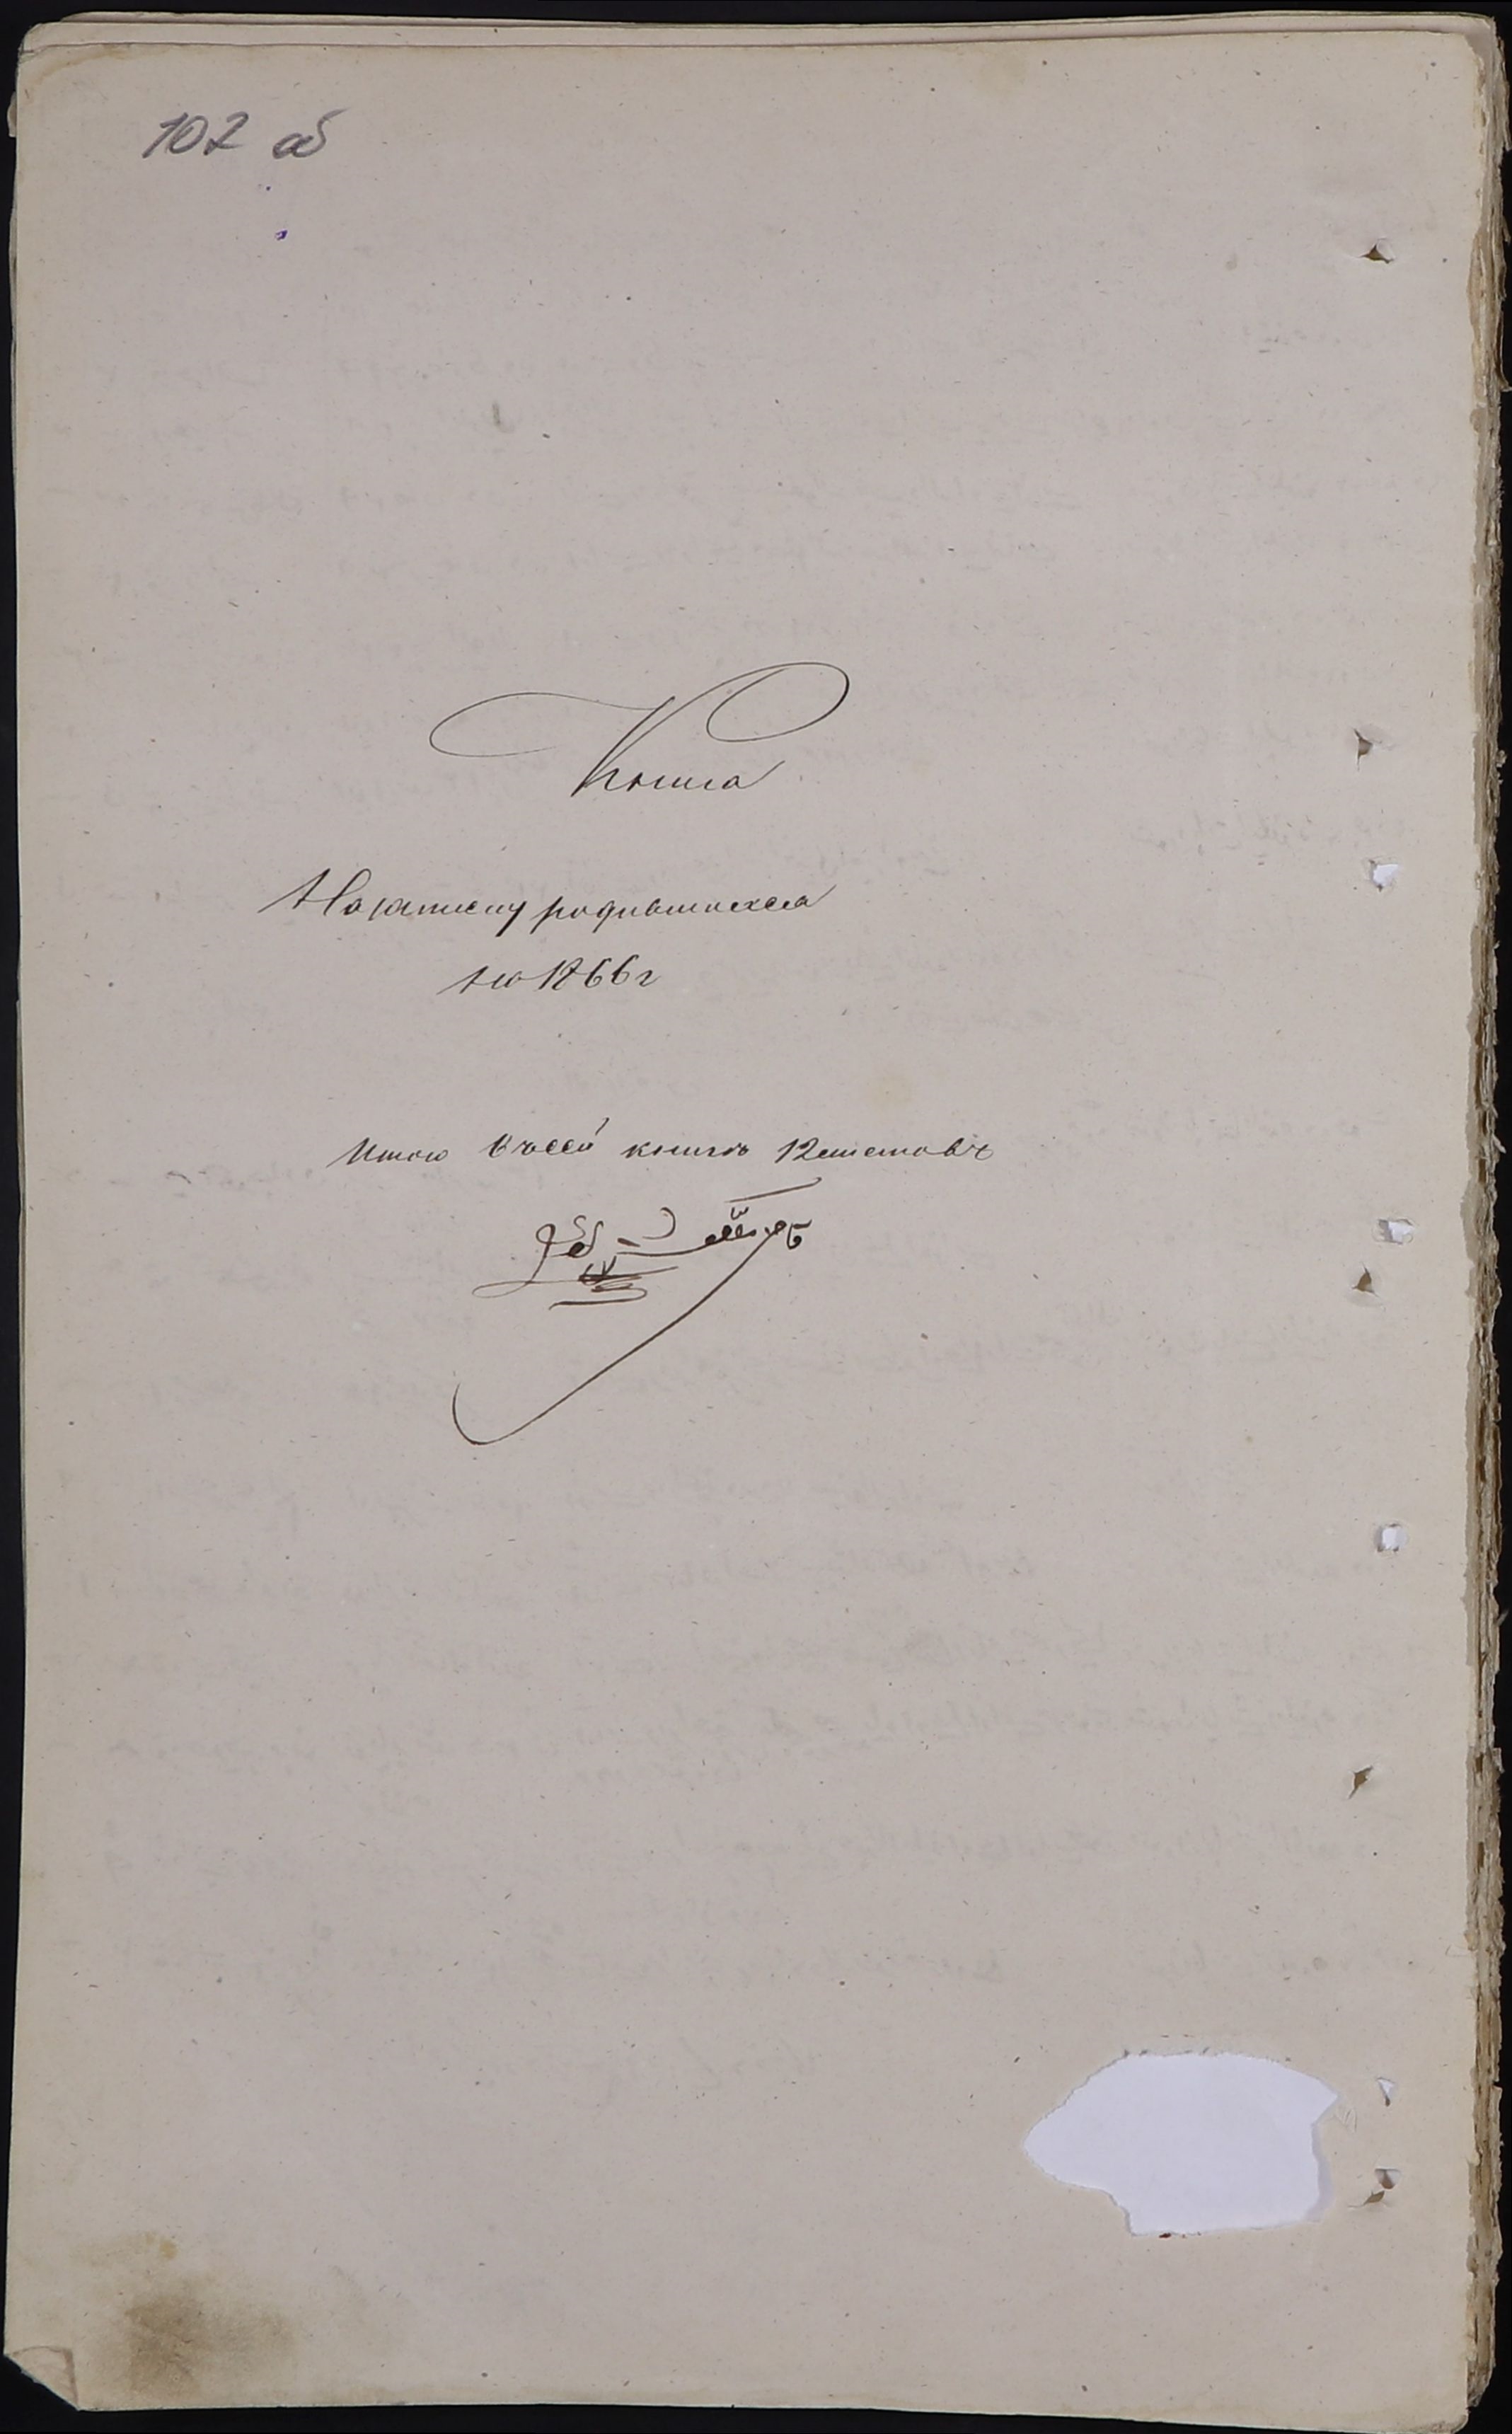 102 об
Книга
На записку родившихся
на 1866 г
Итого въ сей книги 12 листовъ